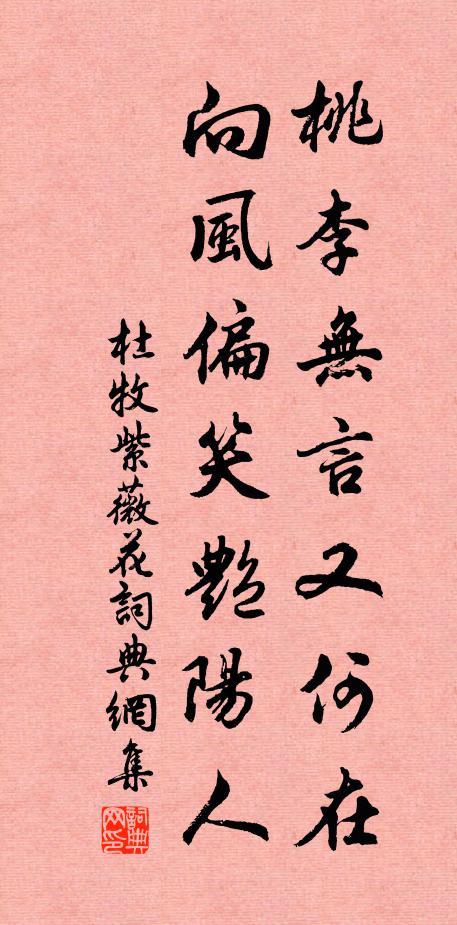 桃李無言又何在
向風偏笑艷陽人
杜牧紫薇花詞典網集
詞典网印